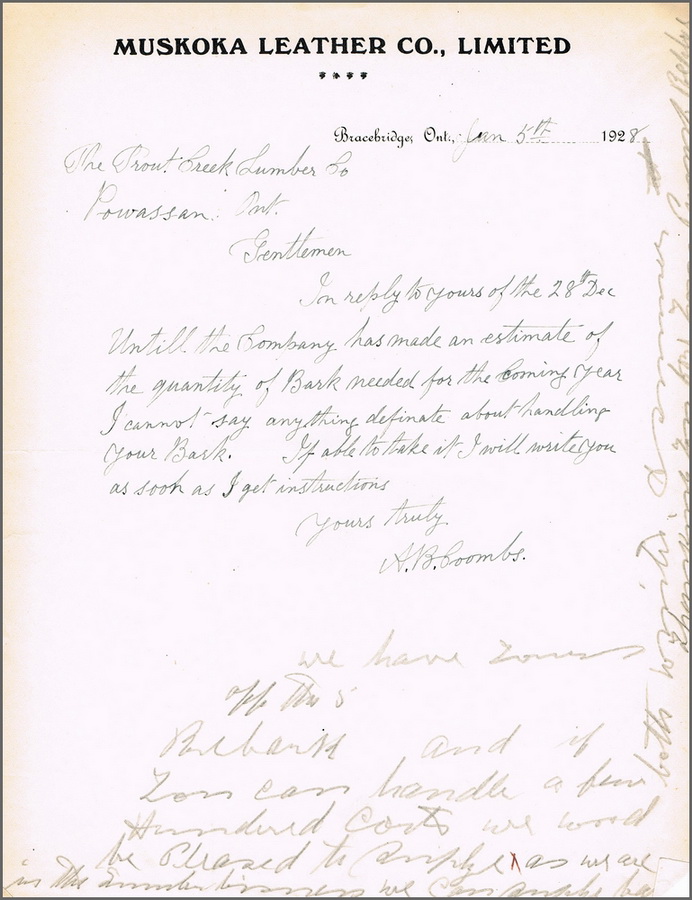 MUSKOKA LEATHER CO., LIMITED
Bracebridge, Ont., Jan 5th 1928
The Trout Creek Lumber Co
Powassan. Ont.
Gentlemen
In reply to yours of the 28th Dec
Untill the Company has made an estimate of
the quantity of Bark needed for the Coming Year
I cannot say anything definate about handling
your Bark. If able to take it I will write you
as soon as I get instructions
Yours truly
A.B.Coombs.
we have yours
off the 5
Rebark and if
you can handle a few
Hundred Cords we wood
be Pleased to supply as we are
in the we can supply
both